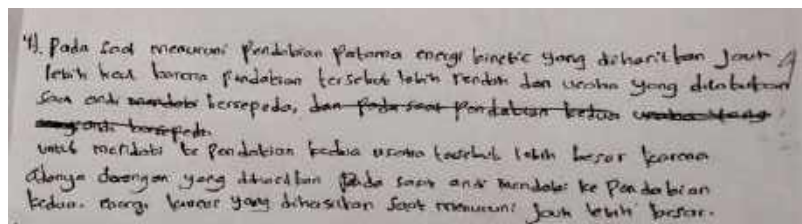 4). Pada saat menuruni pendakian pertama energi kinetic yang diharilkan jauh
lebih kecil karena pendakian tersebut lebih rendah dan usaha yang dilakukan
saat andi mendaki bersepeda, dan pada saat pendakian kedua usaha
andi bersepeda
untuk mendaki ke pendakian kedua usaha tersebut lebih besar karena
adanya dorongan yang dihasilkan pada saat andi mendaki ke pendakian
kedua. energi kinetic yang dihasilkan saat menuruni jauh lebih besar.